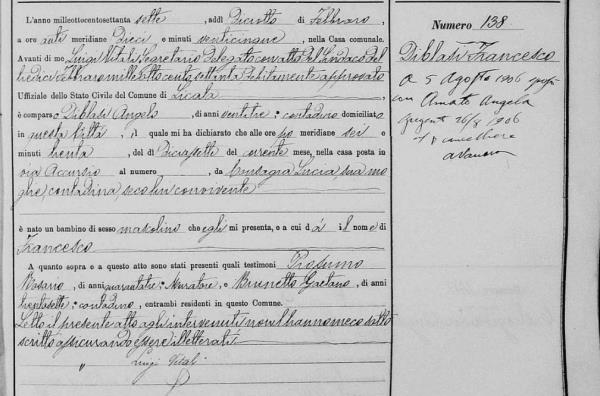 L'anno milleottocentosettanta sette, addì Diciotto di Febbraro,
a ore anti meridiane Dieci e minuti venticinque, nella Casa comunale.
Avanti di me Luigi Vitali Segretario Delegato con atto del Sindaco del
dieci Febbraro mille otto cento settanta debitamente approvato
Uffiziale dello Stato Civile del Comune di Licata
è comparso Diblasi Angelo, di anni ventitre: contadino domiciliato
in questa Città, il quale mi ha dichiarato che alle ore po meridiane sei e
minuti trenta, del dì Diciassette del corrente mese, nella casa posta in
via Accursio al numero , da Lucia, sua mo
glie, contadina, seco lui convivente
è nato un bambino di sesso mascolino che egli mi presenta, e a cui dà il nome di
Francesco
A quanto sopra e a questo atto sono stati presenti quali testimoni
Rosario, di anni quarantatre: Muratore, e Brunetto Gaetano, di anni
trentasette: contadino, entrambi residenti in questo Comune.
Letto il presente atto agli intervenuti non l'hanno meco sotto
scritto assicurando essere illetterati
Luigi Vitali
Numero 138
Diblasi Francesco
a 5 Agosto 1906 sposò
con Amato Angela
Girgenti 26/8 1906
Il cancelliere